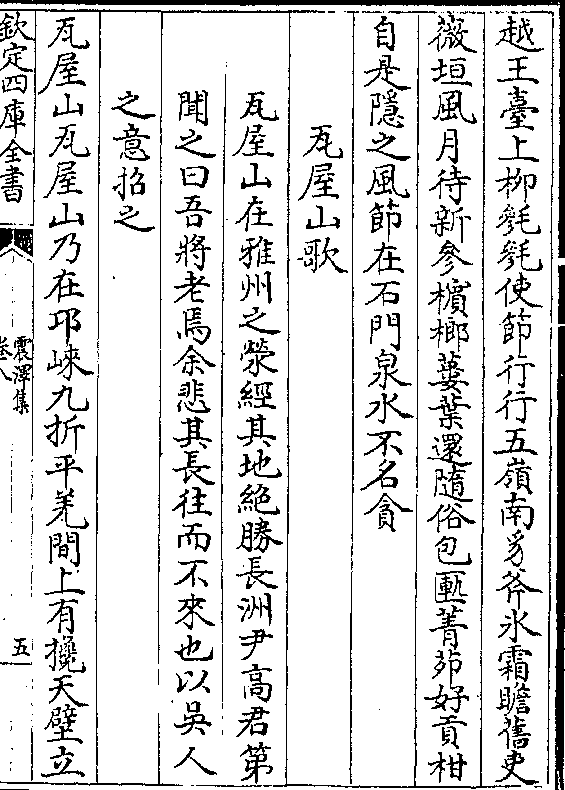 越王臺上栁毿毿使節行行五嶺南豸斧氷霜瞻舊吏
薇垣風月待新參檳榔蔞葉還隨俗包匭菁茆好貢柑
自是隱之風節在石門泉水不名貪
瓦屋山歌
瓦屋山在雅州之滎經其地絶勝長洲尹高君第
聞之曰吾將老焉余悲其長往而不來也以吳人
之意招之
瓦屋山瓦屋山乃在邛崍九折平羌間上有攙天壁立
欽定四庫全書
震澤集
卷八
五